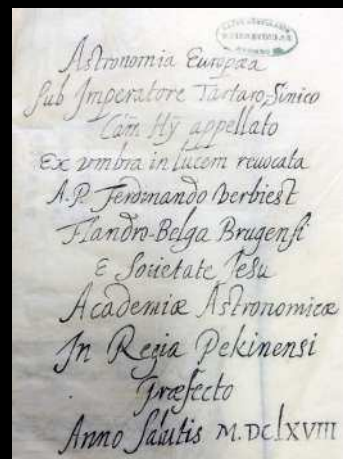 Astronomia Europæa
sub Imperatore Tartaro-Sinico
Cám Hȳ appellato
Ex vmbra in lucem reuocata
A.P. Ferdinando Verbiest
Flandro-Belga Brugensi
E Societate Jesu
Academiæ Astronomicæ
In Regia Pekinensi
Præfecto
Anno Salutis M.DCLXVIII